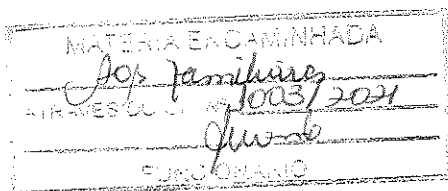 MATÉRIA ENCAMINHADA
Aos Familiares
ATRAVÉS DO OF. Nº 1003/2021
FUNCIONÁRIO